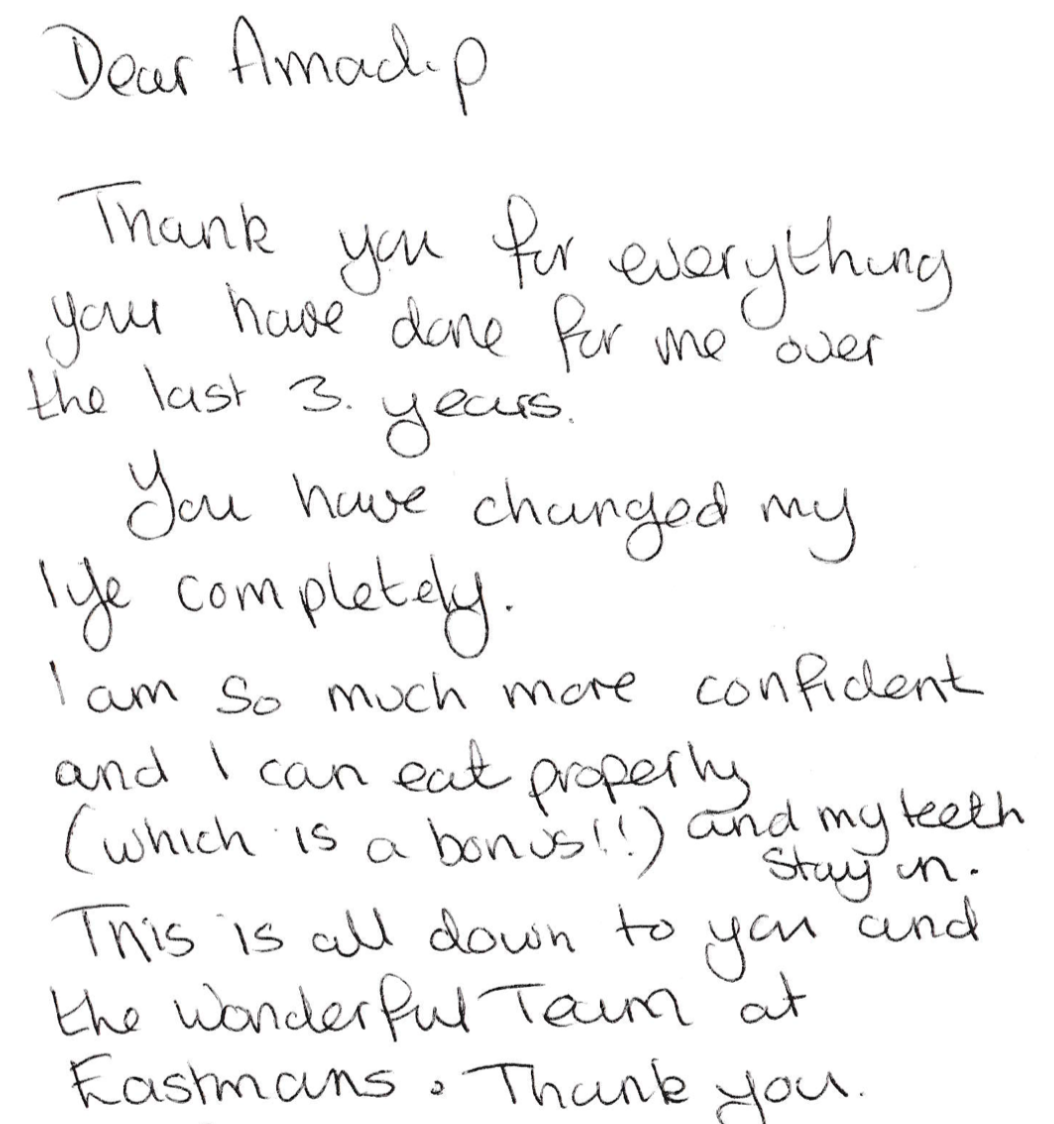 Dear Amadip
Thank you for everything
you have done for me over
the last 3. years.
You have changed my
life completely.
I am so much more confident
and I can eat properly
(which is a bonus!!) and my teeth
stay in.
This is all down to you and
the wonderful Team at
Eastmans. Thank you.